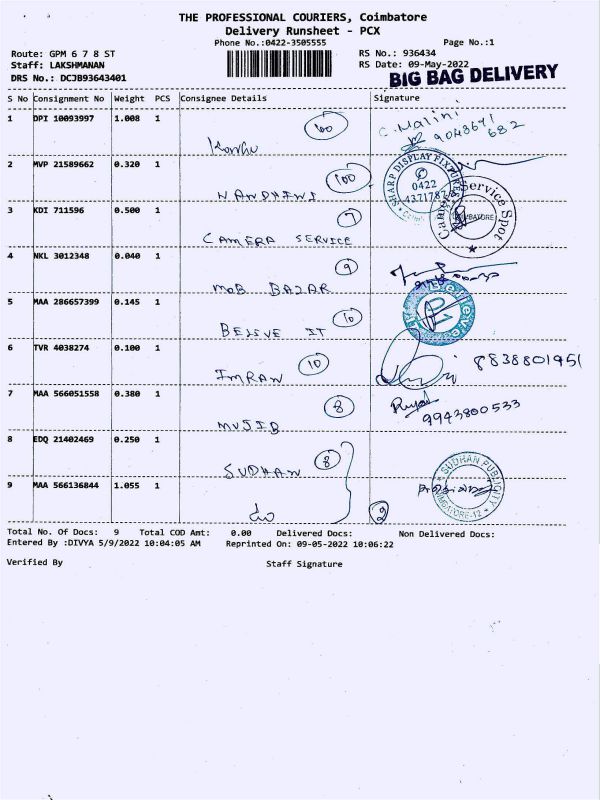 THE PROFESSIONAL COURIERS, Coimbatore
Delivery Runsheet - PCX
Phone No.:0422-3505555
Page No.:1
Route: GPM 6 7 8 ST
RS No.: 936434
Staff: LAKSHMANAN
RS Date: 09-May-2022
DRS No.: DCJB93643401
BIG BAG DELIVERY
S No Consignment No Weight PCS Consignee Details Signature
1 DPI 10093997 1.008 1
100
C. Malini
682
2 MVP 21589662 0.320 1
NANDHINI 100
SHARP DISPLAY FIXTURES
0422
4371787
3 KDI 711596 0.500 1
CAMERA SERVICE 7
Camera Service Spot
COIMBATORE
4 NKL 3012348 0.040 1
MOB BAZAR 9
5 MAA 286657399 0.145 1
BELIVE IT 10
6 TVR 4038274 0.100 1
IMRAN 10
8838801951
7 MAA 566051558 0.380 1
MUJIB 8
9943800533
8 EDQ 21402469 0.250 1
SUDHAN 8
SUDHAN PUBLICITY
COIMBATORE-12
9 MAA 566136844 1.055 1
2
Total No. Of Docs: 9 Total COD Amt: 0.00 Delivered Docs: Non Delivered Docs:
Entered By :DIVYA 5/9/2022 10:04:05 AM Reprinted On: 09-05-2022 10:06:22
Verified By Staff Signature